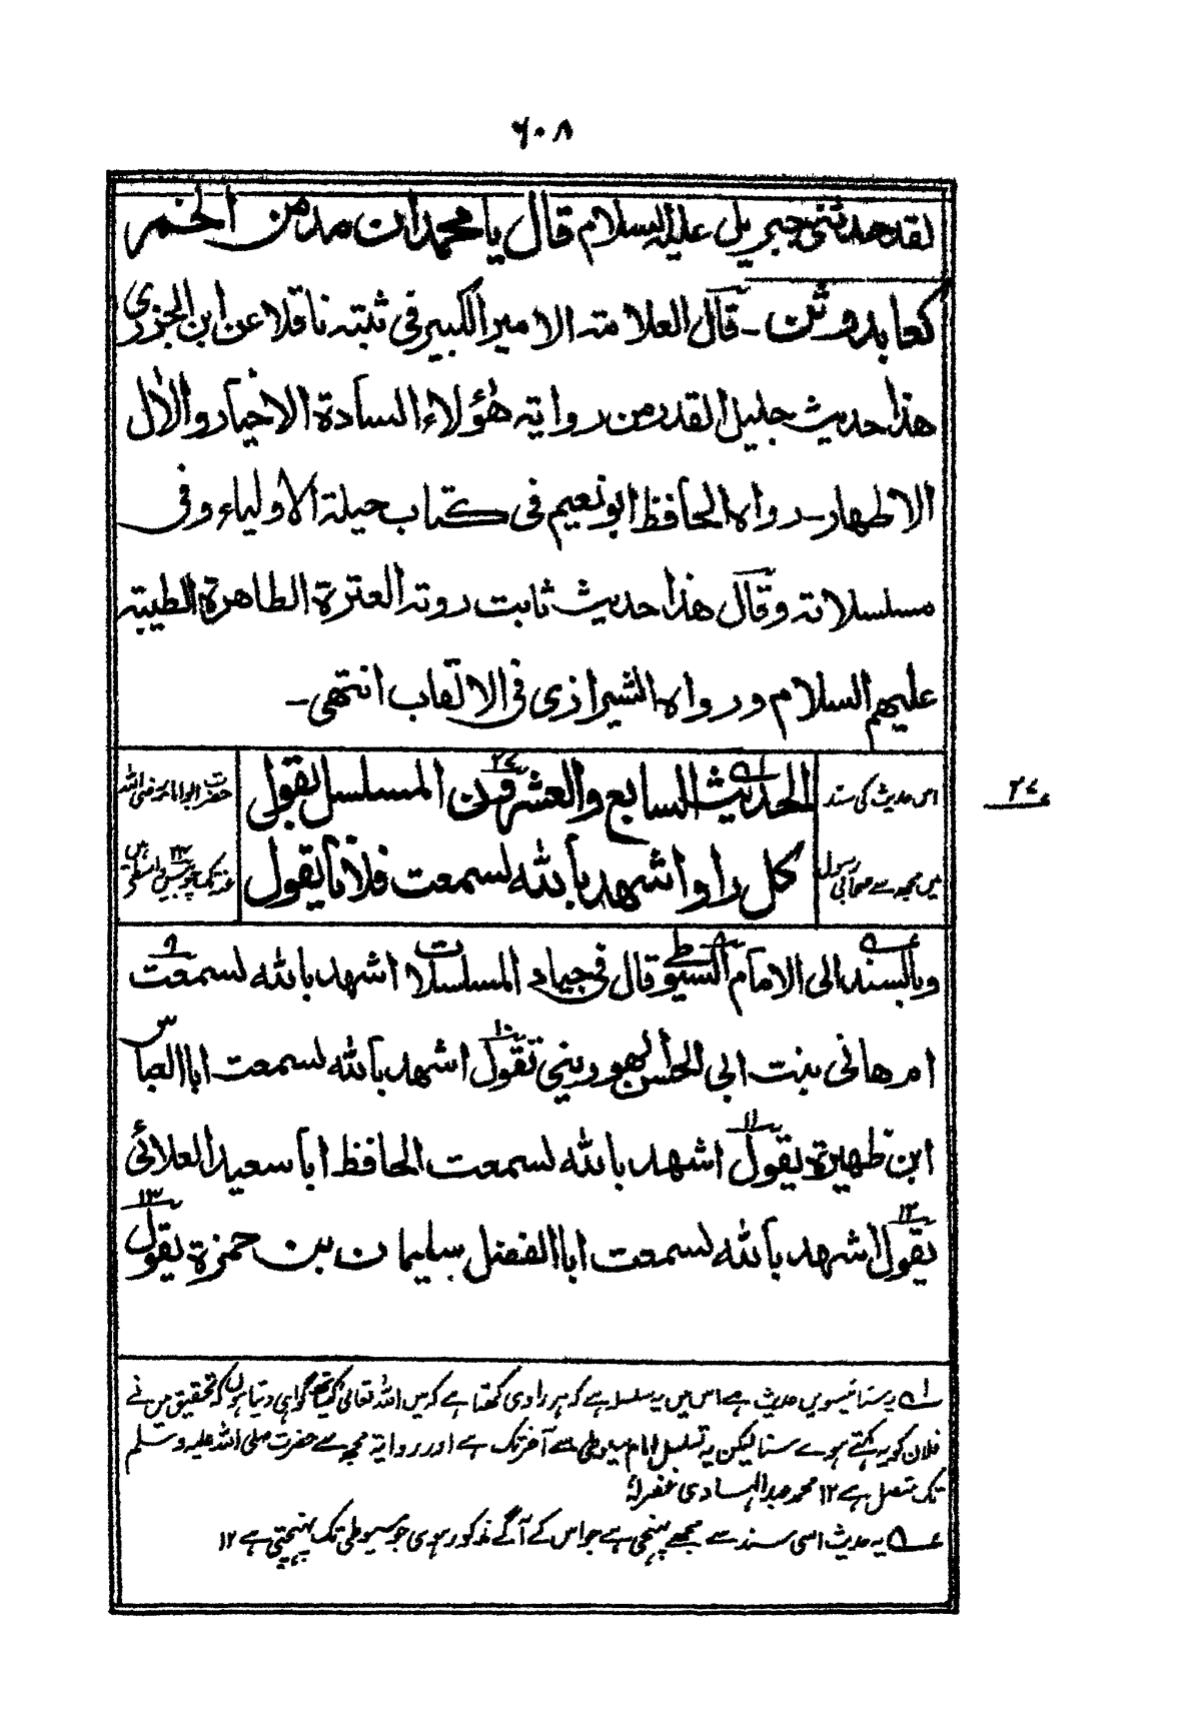 ۶۰۸
لقد حدثنی جبریل علیہ السلام قال یا محمد ان مدمن الخمر
کعابد وثن ـ قال العلامتہ الامیر الکبیر فی ثبتہ ناقلا عن ابن الجزری
ھذا حدیث جلیل القدر من روایتہ ھؤلاء السادة الاخیار والاٰل
الاطہار ـ رواہ الحافظ ابو نعیم فی کتاب حیلة الاولیاء وفی
مسلسلاتہ وقال ھذا حدیث ثابت روتہ العترة الطاھرة الطیبتہ
علیہم السلام ورواہ الشیرازی فی الالقاب انتھی ـ
الحدیث السابع والعشرون المسلسل بقول
۲۷
کل راو اشھد باللہ لسمعت فلاناً یقول
اس حدیث کی سند
میں مجھ سے صحابی رسول
حضرت ابو امامہ رضی اللہ
عنہ تک ۲۳ ہیں
۲۷
وبالسند الی الامام السیوطی قال فی جیاد المسلسلات اشھد باللہ لسمعت
ام ھانی بنت ابی الحسن الھورینی تقول اشھد باللہ لسمعت ابا العباس
ابن ظھیرة یقول اشھد باللہ لسمعت الحافظ ابا سعید العلائی
یقول اشھد باللہ لسمعت ابا الفضل سلیمان بن حمزة یقول
لہ یہ ستائیسویں حدیث ہے اس میں یہ سلسلہ ہے کہ ہر راوی کہتا ہے کہ میں اللہ تعالیٰ کیساتھ گواہی دیتا ہوں کہ تحقیق میں نے
فلاں کو یہ کہتے ہوے سنا لیکن یہ تسلسل امام سیوطی سے آخر تک ہے اور روایۃ مجھ سے حضرت صلی اللہ علیہ وسلم
تک متصل ہے ۱۲ محمد عبد الہادی غفرلہ
عہ یہ حدیث اسی سند سے مجھے پہنچی ہے جو اس کے آگے مذکور ہوی جو سیوطی تک پہنچتی ہے ۱۲